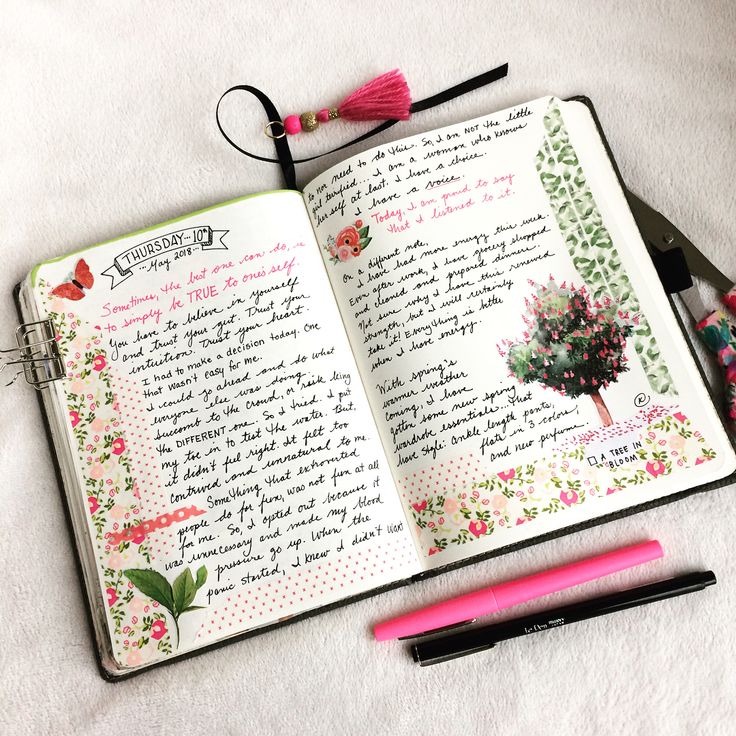 THURSDAY... 10th
... May, 2018 ...
Sometimes, the best one can do, is
to simply be TRUE to one's self.
You have to believe in yourself
and trust your gut. Trust your
intuition. Trust your heart.
I had to make a decision today. One
that wasn't easy for me.
I could go ahead and do what
everyone else was doing...
succomb to the crowd, or risk being
the DIFFERENT one. So I tried. I put
my toe in to test the water. But,
it didn't feel right. It felt too
contrived and unnatural to me.
Something that extroverted
people do for fun, was not fun at all
for me. So, I opted out because it
was unnecessary and made my blood
pressure go up. When the
panic started, I knew I didn't want
to nor need to do this. So, I am NOT the little
girl terrified... I am a woman who knows
her self at last. I have a choice.
I have a voice.
Today, I am proud to say
that I listened to it.
On a different note,
I have had more energy this week.
Even after work, I have grocery shopped
and cleaned and prepared dinners.
Not sure why I have this renewed
strength, but I will certainly
take it! Everything is better
when I have energy.
With spring's
warmer weather
coming, I have
gotten some new spring
wardrobe essentials... that
have style: ankle length pants,
flats in 3 colors,
and new perfume.
K
A TREE IN
BLOOM
Le Pen